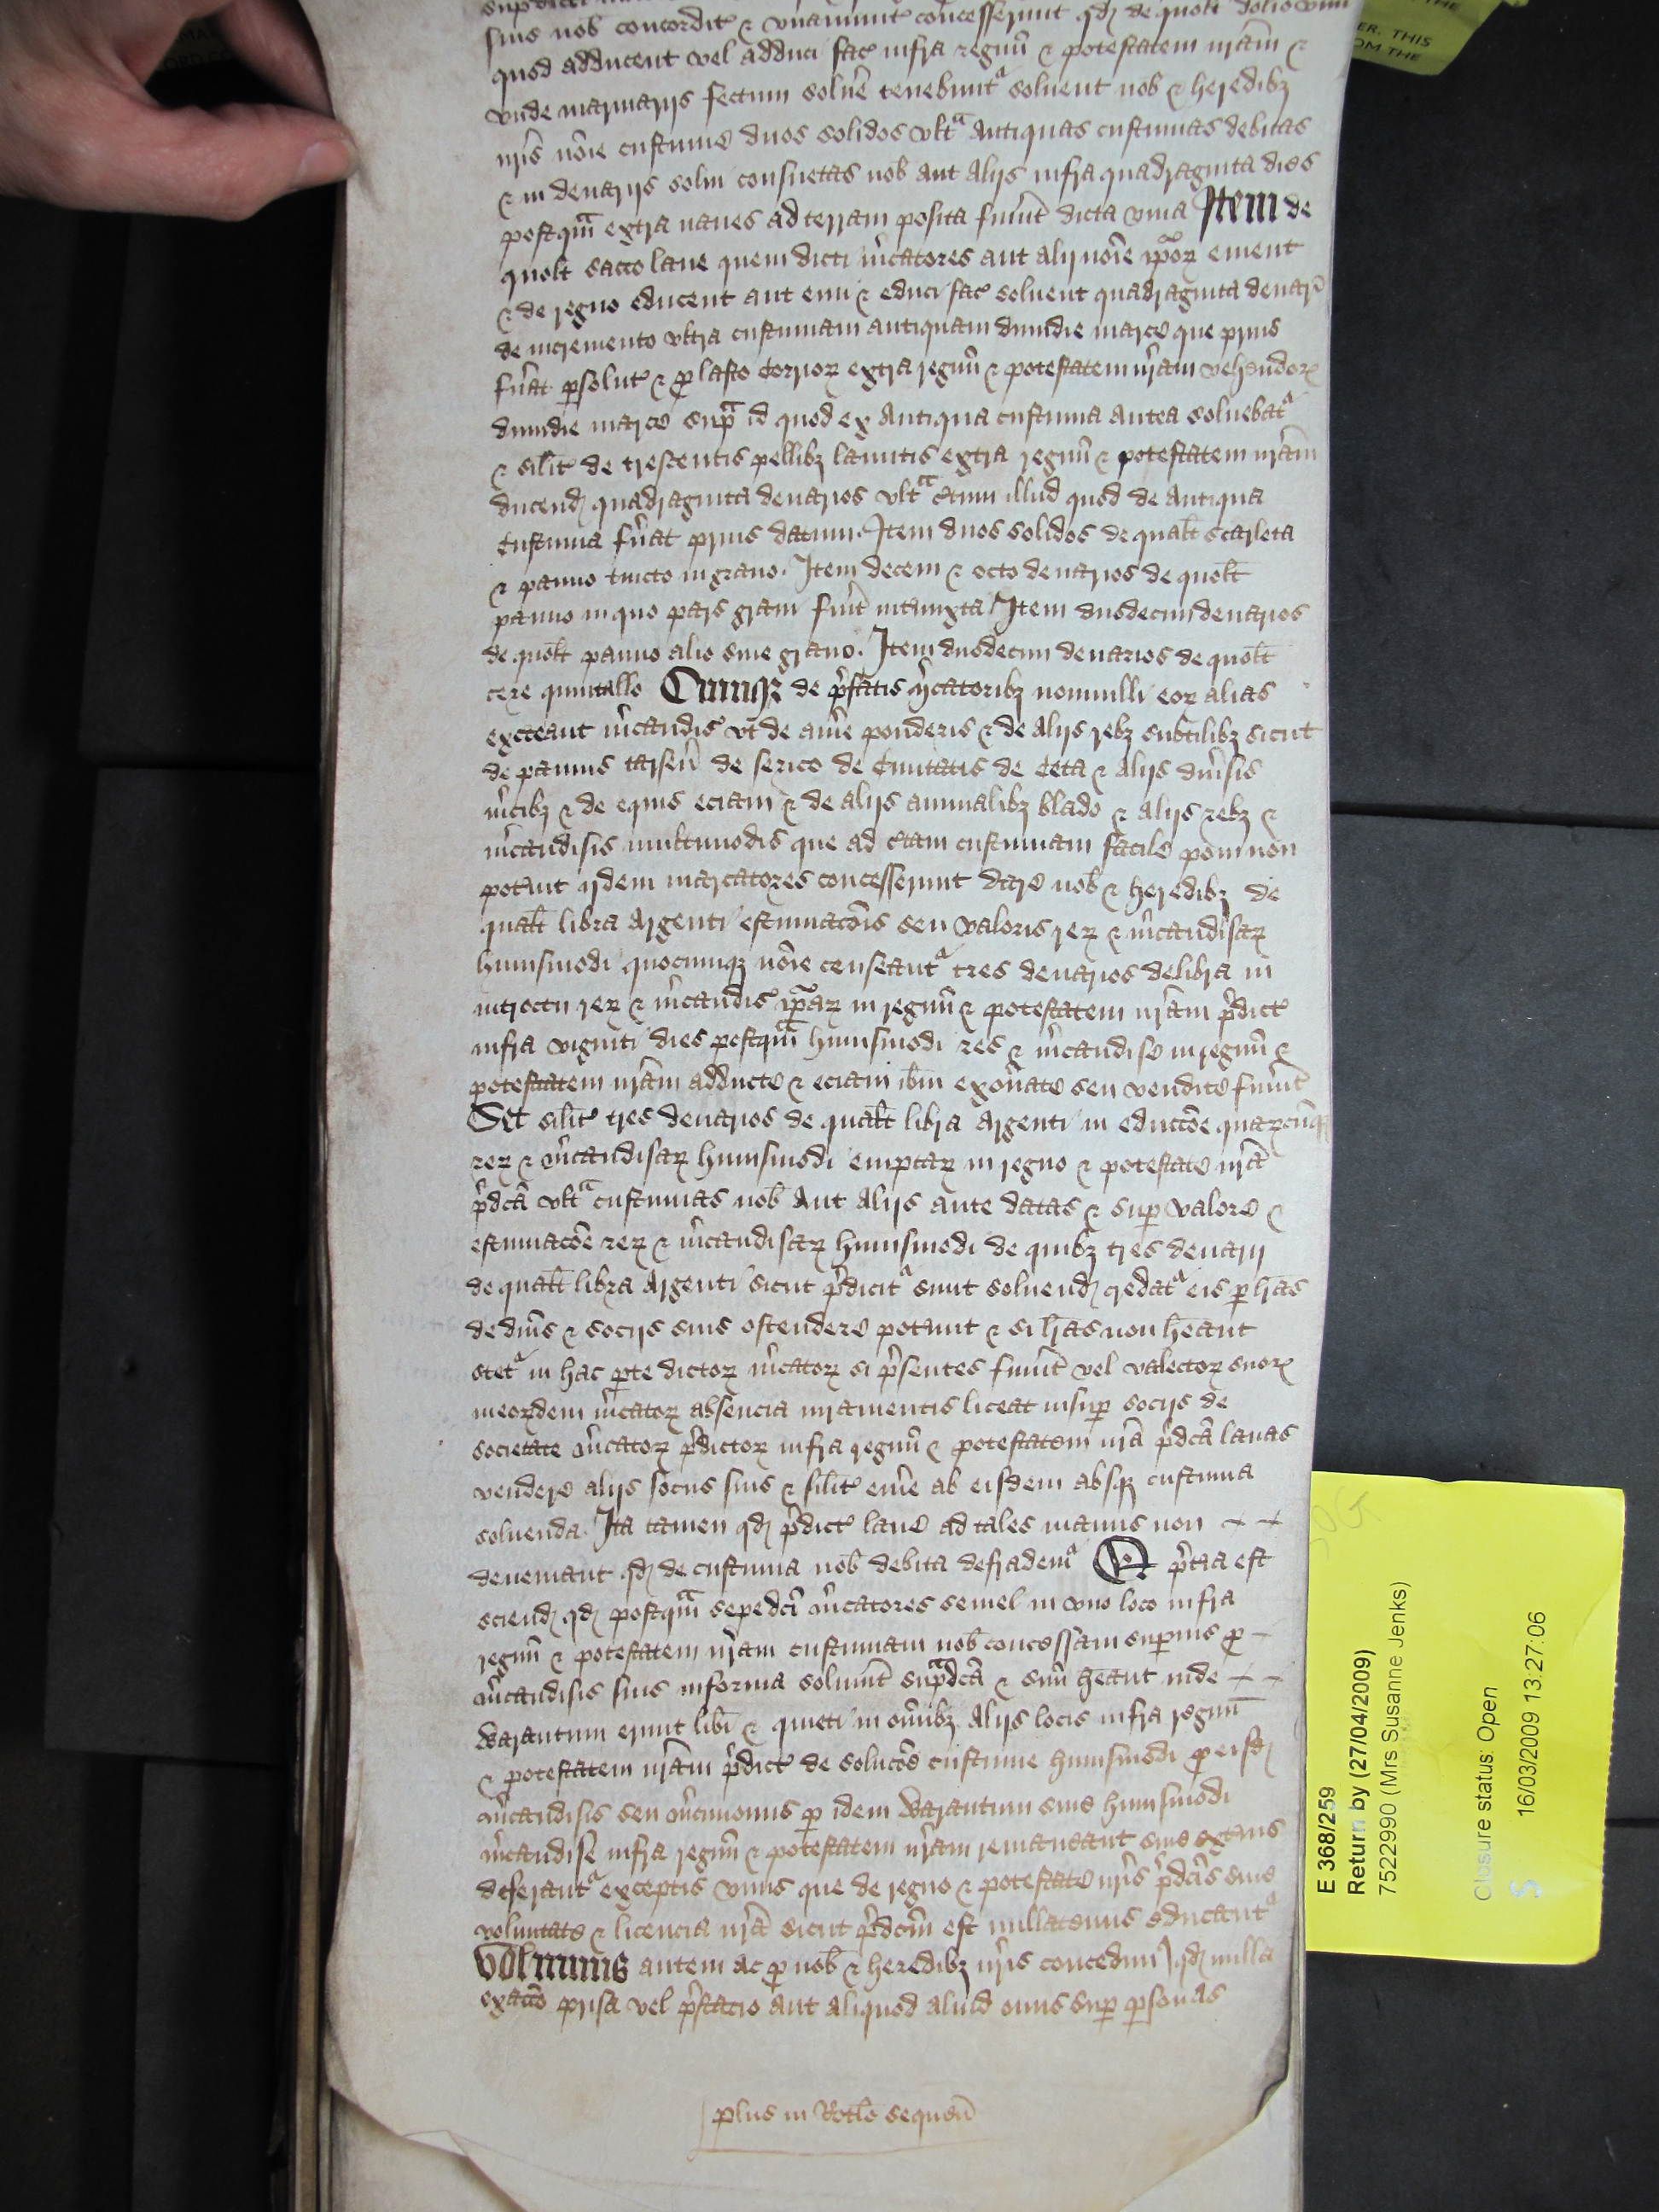 suis nob concordit & vnanimit concesserunt qd de quolt dolio vini
quod adducent vel adduci fac infra regnu & potestatem nram &
vnde marinarijs frettum soluere tenebunt soluent nob & heredibz
nris noie custume duos solidos vlt antiquas custumas debitas
& in denarijs solui consuetas nob aut alijs infra quadraginta dies
postqm extra naues ad terram posita fuint dicta vina Item de
quolt sacco lane quem dicti mcatores aut alij noie ipor ement
& de regno educent aut emi & educi fac soluent quadraginta denar
de incremento vltra custumam antiquam dimidie marce que prius
fuat psolut & p lasto corior extra regnu & potestatem nram vehendor
dimidie marce supa id quod ex antiqua custuma antea soluebat
& silit de trescentis pellibz lanutis extra regnu & potestatem nram
ducend quadraginta denarios vlt ctum illud quod de antiqua
custuma fuat prius datum. Item duos solidos de qualt scarleta
& panno tincto in grano. Item decem & octo denarios de quolt
panno in quo pars grani fuit intamixta Item duodecim denarios
de quolt panno alio sine grano. Item duodecim denarios de quolt
cere quintallo Cumqz de pfatis mcatoribz nonnulli eor alias
exceant mcandis vt de auie ponderis & de alijs rebz subtilibz sicut
de pannis tarsen de serico de Cinitatis de ceta & alijs diusis
mcibz & de equis eciam & de alijs animalibz blado & alijs rebz &
mcandisis multimodis que ad ctam custumam facile poni non
potunt ijdem marcatores concesserunt dare nob & heredibz de
qualt libra argenti estimacois seu valoris rer & mcandisar
humsmodi quocumqz noie censeant tres denarios de libra in
introctu rer & mcandis ipar in regnu & potestatem nram pdict
infra viginti dies postqm humsmodi res & mcandise in regnu &
potestatem nram adducte & eciam ibm exoñate seu vendite fuint
Et silit tres denarios de qualt libra argenti in educcoe quarcumqz
rer & mcandisar humsmodi emptar in regno & potestate nra
pdca vlt custumas nob aut alijs ante datas & sup valore &
estimacoe rer & mcandisar humsmodi de quibz tres denarij
de qualt libra argenti sicut pdicit sunt soluend credat eis p lras
de dnis & socijs suis ostendere potunt & si lras non heant
stet in hac pte dictor mcator si psentes fuint vel valector suor
in eordem mcator absencia iuramentis liceat insup socijs de
societate mcator pdictor infra regnu & potestatem nra pdca lanas
vendere alijs socijs suis & silit emie ab eisdem absqz custuma
soluenda. Ita tamen qd pdict lane ad tales manus non
deueniant qd de custuma nob debita defradem Et ptia est
sciend qd postqm sepedci mcatores semel in vno loco infra
regnu & potestatem nram custumam nob concessam supius p
mcandisis suis in forma soluint supadca & suu heant inde
Warantum erunt libi & quieti in omibz alijs locis infra regnu
& potestatem nram pdict de solucoe custume humsmodi p eisd
mcandisis seu mcimonijs p idem Warantum siue humsmodi
mcandise infra regnu & potestatem nram remaneant siue extius
deferant exceptis vinis que de regno & potestate nris pdcis sine
voluntate & licencia nra sicut pdcm est nullatenus educant
Volumus autem ac p nob & heredibz nris concedim qd nulla
exaccio prisa vel pstacio aut aliquod aliud onus sup psonas
plus in Rotlo sequen
E 368/259
Return by (27/04/2009)
7522990 (Mrs Susanne Jenks)
Closure status: Open
16/03/2009 13:27:06